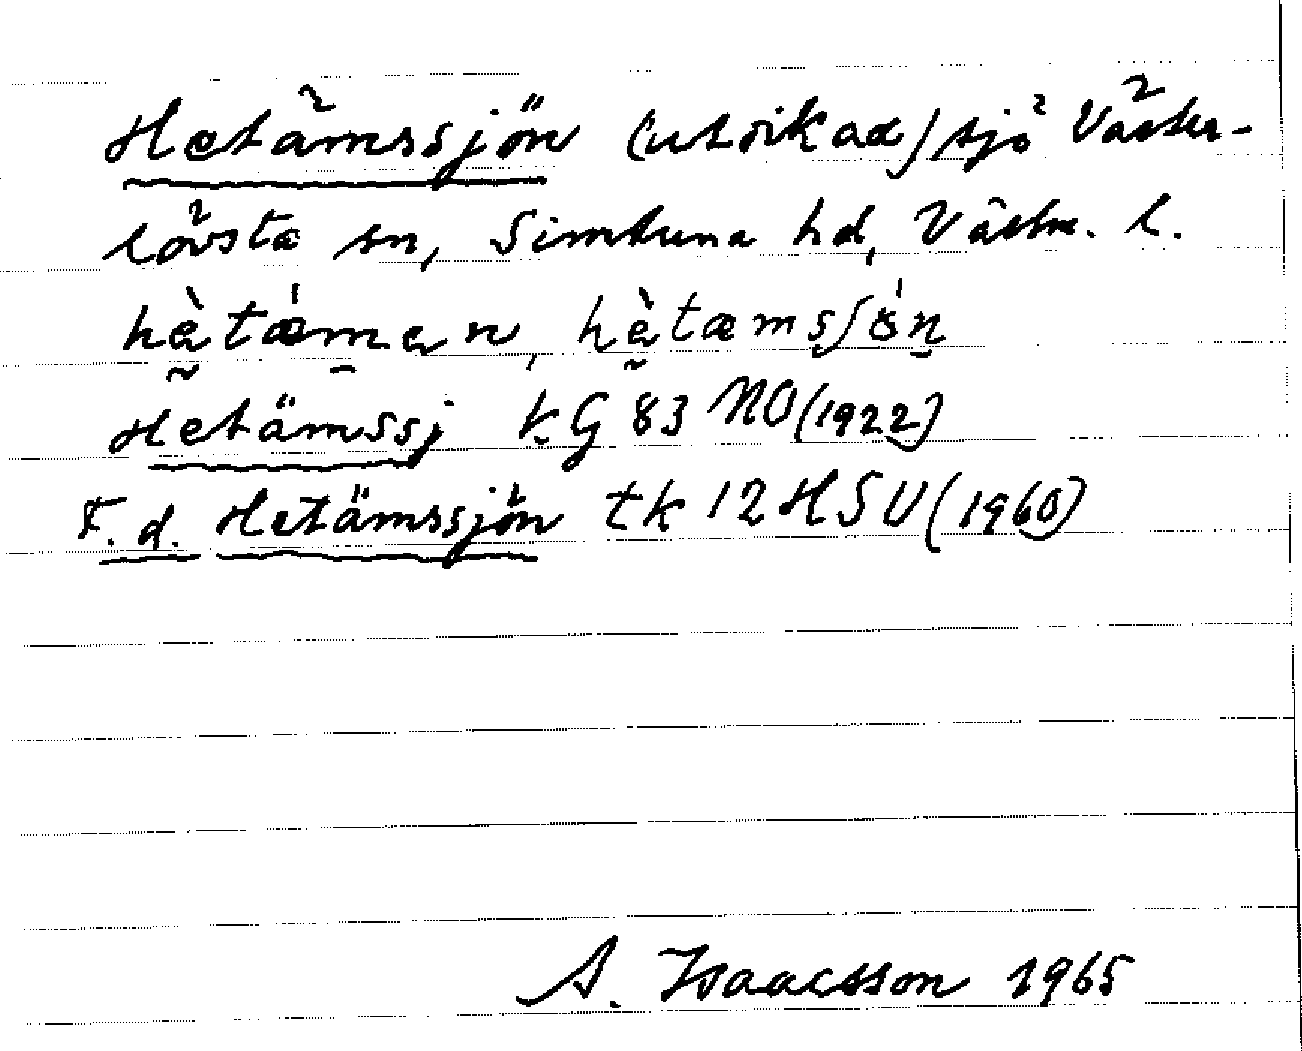 Hetämssjön (utdikad) sjö Väster-
lövsta sn, Simtuna hd, Västm. l.
hètǽmen, hètæmsʃǿn
Hetämssj kG 83 NO (1922)
F.d. Hetämssjön tk 12 H SV (1960)
A. Isaacsson 1965